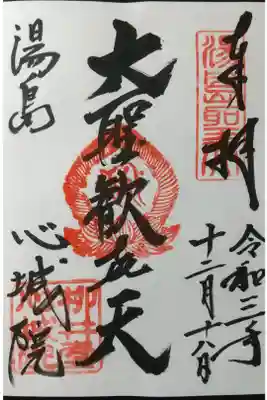 奉拝
令和三年
十二月十八日
大聖歓喜天
湯島
心城院